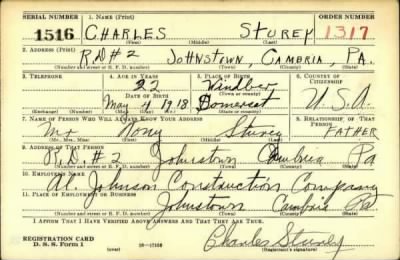 SERIAL NUMBER 1. NAME (Print) ORDER NUMBER
1516 CHARLES STUREY 1317
(First) (Middle) (Last)
2. ADDRESS (Print)
R.D#2 JOHNSTOWN, CAMBRIA, PA.
(Number and street or R. F. D. number) (Town) (County) (State)
3. TELEPHONE 4. AGE IN YEARS 5. PLACE OF BIRTH 6. COUNTRY OF CITIZENSHIP
22 Windber
DATE OF BIRTH (Town or county)
May 4 1918 Somerset U.S.A.
(Exchange) (Number) (Mo.) (Day) (Yr.) (State or country)
7. NAME OF PERSON WHO WILL ALWAYS KNOW YOUR ADDRESS 8. RELATIONSHIP OF THAT PERSON
Mr Sturey FATHER
(Mr., Mrs., Miss) (First) (Middle) (Last)
9. ADDRESS OF THAT PERSON
R.D. #2 Johnstown Cambria Pa
(Number and street or R. F. D. number) (Town) (County) (State)
10. EMPLOYER'S NAME
Al. Johnson Construction Company
11. PLACE OF EMPLOYMENT OR BUSINESS
Johnstown Cambria Pa
(Number and street or R. F. D. number) (Town) (County) (State)
I AFFIRM THAT I HAVE VERIFIED ABOVE ANSWERS AND THAT THEY ARE TRUE.
REGISTRATION CARD
D. S. S. Form 1 (over) Charles Sturey
(Registrant's signature)